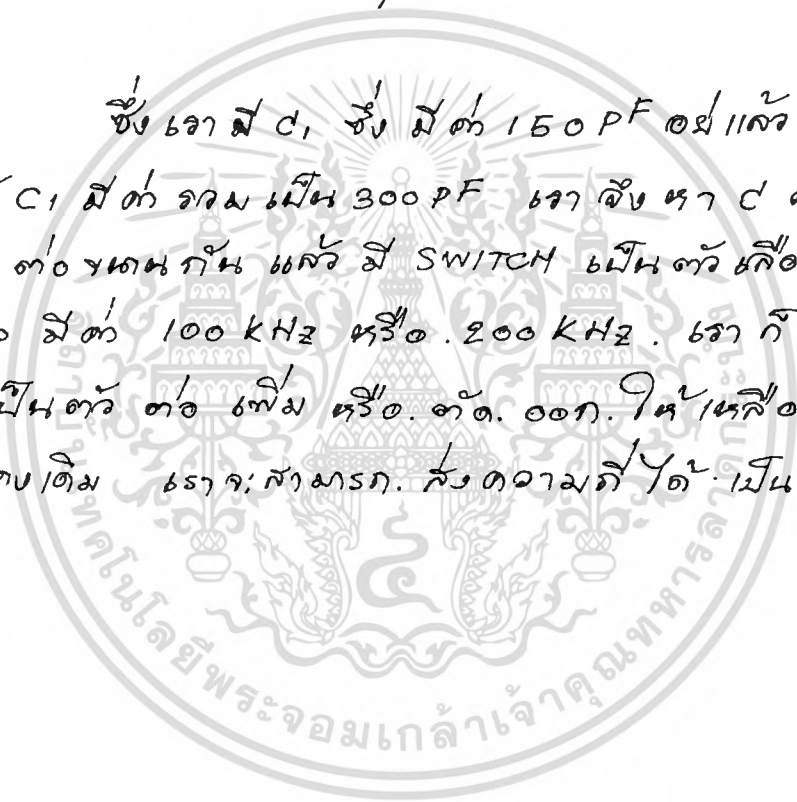 ซึ่งเรามี C1 ซึ่งมีค่า 150 PF อยู่แล้ว
C1 มีค่ารวมเป็น 300 PF เราจึงหา C
ต่อขนานกัน แล้วมี SWITCH เป็นตัวเลือ
มีค่า 100 KHz หรือ. 200 KHz. เราก็
เป็นตัว ต่อ เพิ่ม หรือ. ตัด. ออก. ให้เหลือ
เดิม เราจะสามารถ. ส่งความถี่ได้. เป็น
คโนโลยีพระจอมเกล้าเจ้าคุณทหารลาดกระ